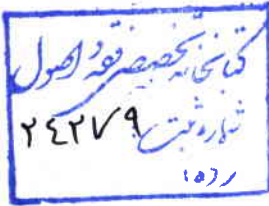 کتابخانه تخصصی فقه و اصول
شماره ثبت ۲۴۲۷۹